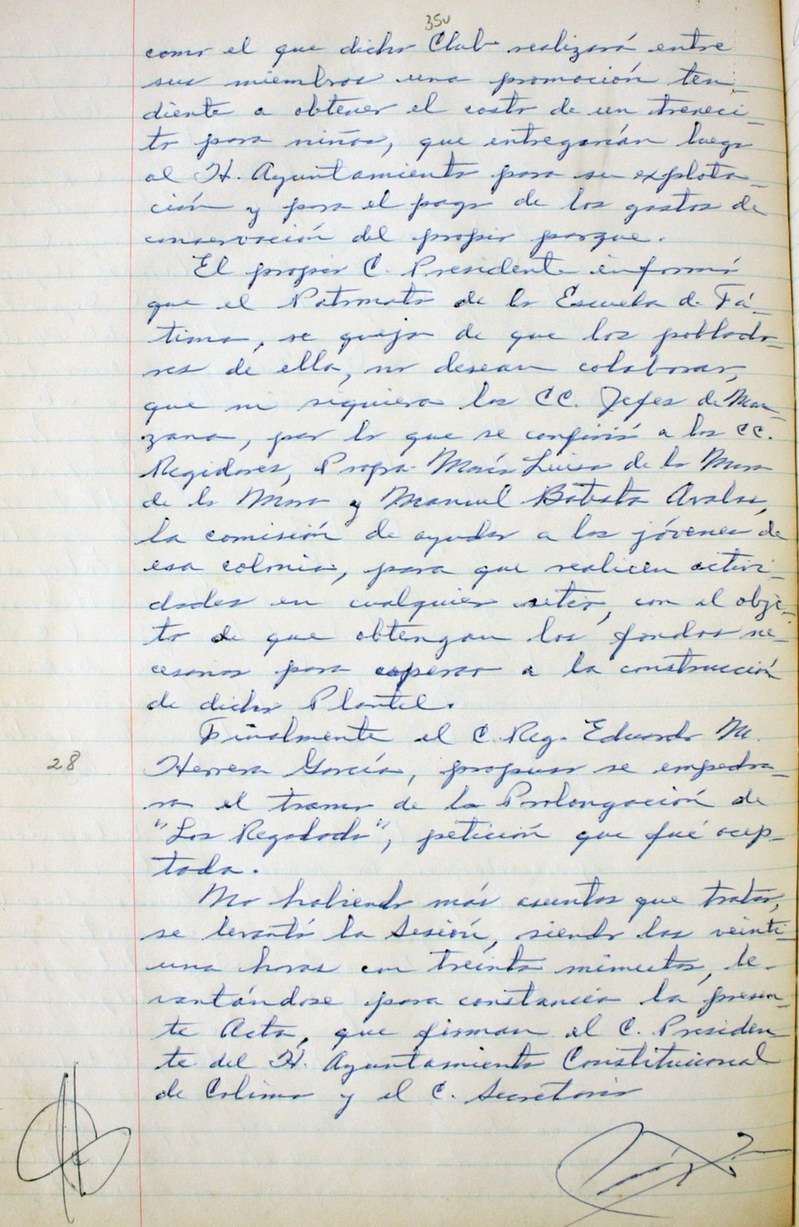 35v
como el que dicho Club realizará entre
sus miembros una promoción ten-
diente a obtener el costo de un treneci-
to para niños, que entregarían luego
al H. Ayuntamiento para su explota-
ción y para el pago de los gastos de
conservación del propio parque.
El propio C. Presidente informó
que el Patronato de la Escuela de Fá-
tima, se queja de que los poblado-
res de ella, no desean colaborar,
que ni siquiera los CC. Jefes de Man-
zana, por lo que se confirió a los CC.
Regidores, Profa. María Luisa de la Mora
de la Mora y Manuel Batista Avalos,
la comisión de ayudar a los jóvenes de
esa colonia, para que realicen activi-
dades en cualquier sitio, con el obje-
to de que obtengan los fondos ne-
cesarios para a la construcción
de dicho Plantel.
Finalmente el C. Reg. Eduardo M.
28 Herrera García, propuso se empedra-
ra el tramo de la Prolongación de
"Los Regalado", petición que fué acep-
tada.
No habiendo más asuntos que tratar,
se levantó la Sesión, siendo las veinti-
una horas con treinta minutos, le-
vantándose para constancia la presen-
te Acta, que firman el C. Presiden-
te del H. Ayuntamiento Constitucional
de Colima y el C. Secretario